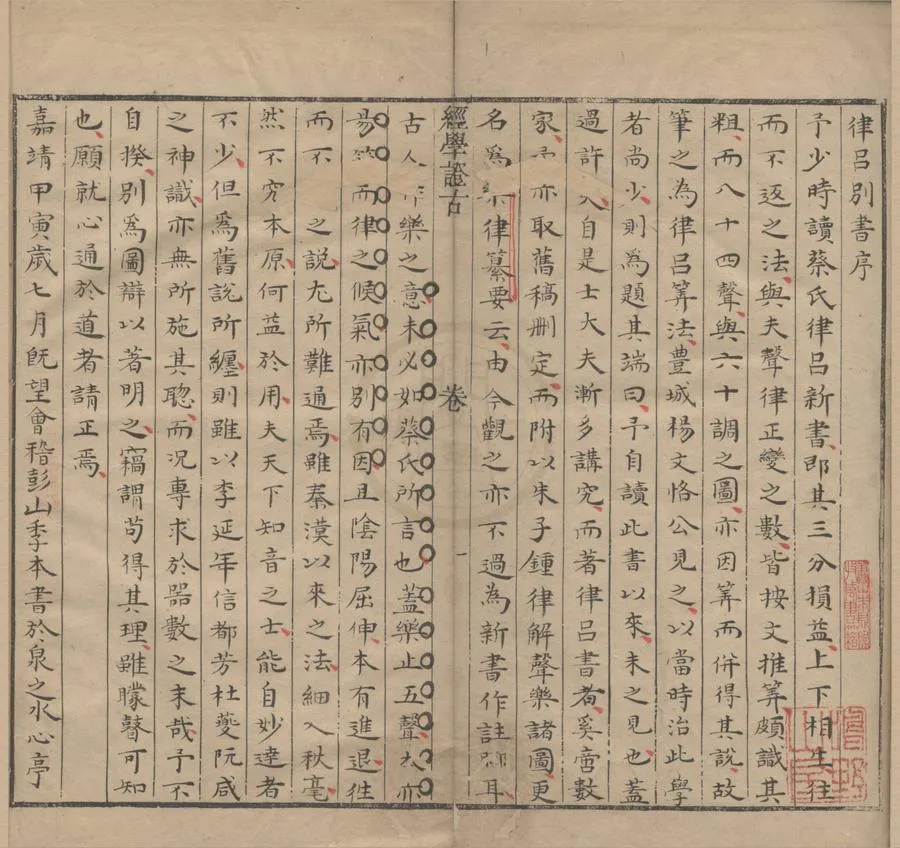 律呂別書序
予少時讀蔡氏律呂新書即其三分損益上下相生往
而不返之法與夫聲律正變之數皆按文推筭頗識其
粗而八十四聲與六十調之圖亦因筭而併得其說故
筆之為律呂筭法豊城楊文恪公見之以當時治此學
者尚少則為題其端曰予自讀此書以來未之見也蓋
過許入自是士大夫漸多講究而著律呂書者奚啻數
家亦取舊稿刪定而附以朱子鍾律解聲樂諸圖更
名為律纂要云由今觀之亦不過為新書作註耳
經學證古
卷
一
古人作樂之意未必如蔡氏所言也蓋樂止五聲亦
易而律之候氣亦別有因且陰陽屈伸本有進退往
而不之說尢所難通焉雖秦漢以來之法細入秋毫
然不究本原何益於用夫天下知音之士能自妙達者
不少但爲舊說所纏則雖以李延年信都芳杜夔阮咸
之神識亦無所施其聰而況專求於器數之末哉予不
自揆別爲圖辯以著明之竊謂苟得其理雖矇瞽可知
也願就心通於道者請正焉
嘉靖甲寅歲七月既望會稽彭山季本書於泉之水心亭